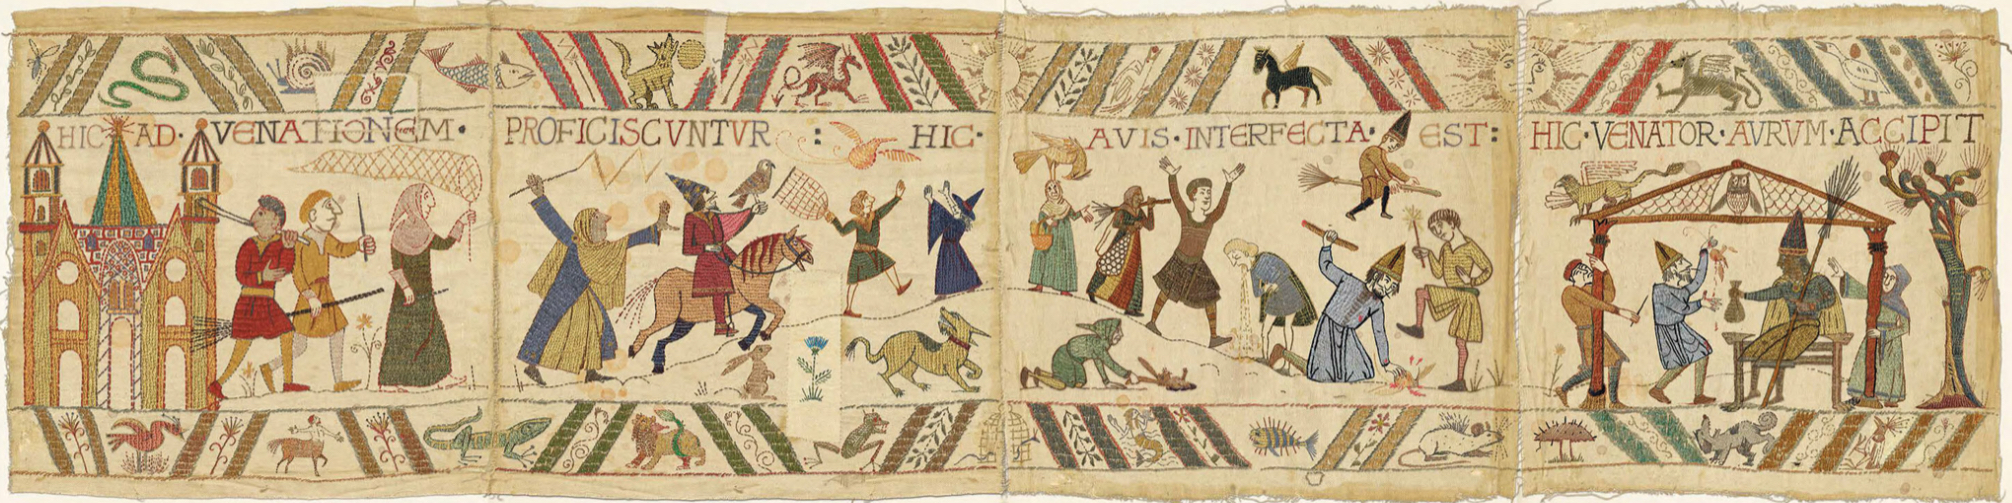 HIC · AD · VENATIONEM · PROFICISCVNTVR : HIC · AVIS · INTERFECTA · EST : HIC · VENATOR · AVRVM · ACCIPIT